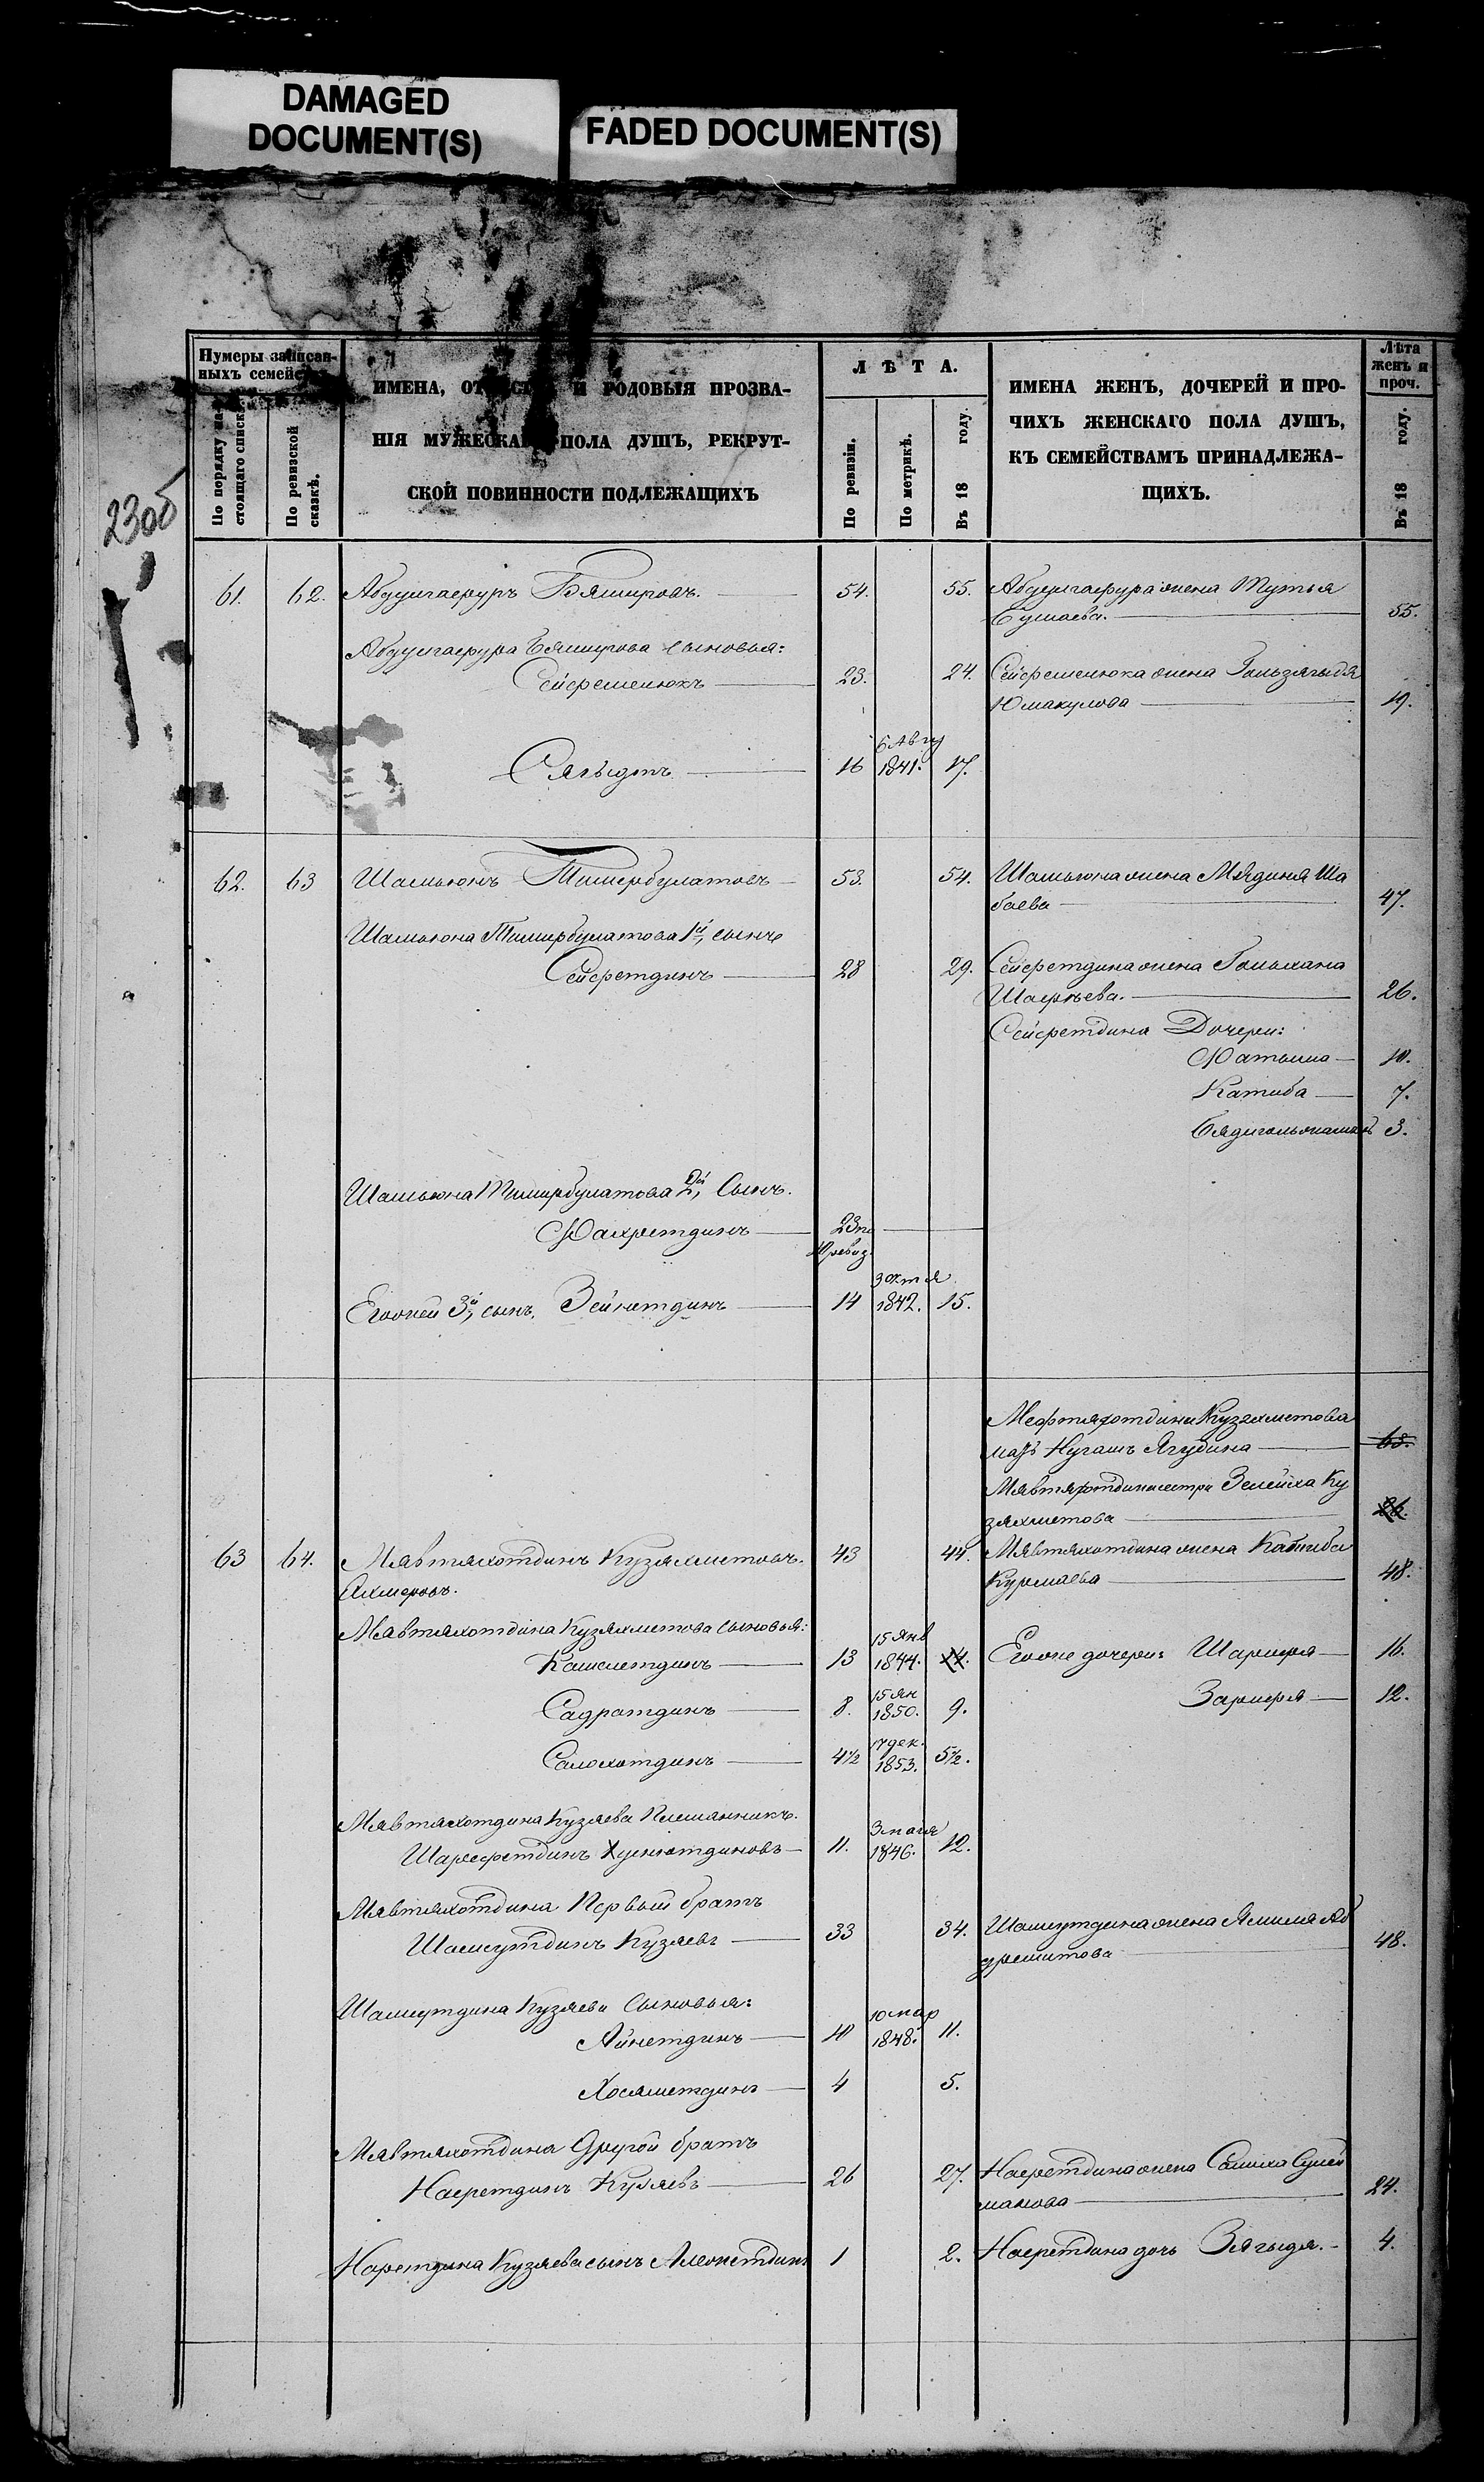 DAMAGED
DOCUMENT(S)
FADED DOCUMENT(S)
230об
Нумеры записан-
ныхъ семейс
По порядку на-
стоящаго списка.
По ревизской
сказкѣ.
ИМЕНА, И РОДОВЫЯ ПРОЗВА-
НІЯ МУЖЕСКА ПОЛА ДУШЪ, РЕКРУТ-
СКОЙ ПОВИННОСТИ ПОДЛЕЖАЩИХЪ
ЛѢТА.
По ревизіи.
По метрикѣ.
Въ 18 году.
ИМЕНА ЖЕНЪ, ДОЧЕРЕЙ И ПРО-
ЧИХЪ ЖЕНСКАГО ПОЛА ДУШЪ,
КЪ СЕМЕЙСТВАМЪ ПРИНАДЛЕЖА-
ЩИХЪ.
Лѣта
женъ и
проч.
Въ 18 году.
61. 62. Абдулгафуръ Бяшировъ. 54. 55. Абдулгафура жена Мутья
55.
Абдулгафура Бяширова сыновья:
Сейфеленюкъ 23. 24. Сейфеленюка жена Гользягыдя
Юмакулова 19.
6 Авгу
Сягыдтъ 16 1841. 17.
62. 63 Шамьюнъ Тимербулатовъ 53. 54. Шамьюна жена Мядиня Ша
баева 47.
Шамьюна Тимирбулатова 1й, сынъ
Сейфетдинъ 28 29. Сейфетдина жена Гольжана
Шафѣева. 26.
Сейфетдина Дочери:
Фатыма 10.
Катиба 7.
Бядигольжамалъ 3.
Шамьюна Тимирбулатова 2й, Сынъ.
Фахретдинъ 23 по
ревиз.
3 октя
Егоже 3й, сынъ, Зейнетдинъ 14 1842. 15.
Мефтяхотдина Кузяхметова
мать Нугашъ Ягудина 68.
Мявтяхотдина сестра Зелейха Ку
зяхметова 26.
63 64. Мявтяхотдинъ Кузяхметовъ. 43 44. Мявтяхотдина жена Катиба
Курмаева 48.
Мявтяхотдина Кузяхметова сыновья:
15 Янв
Камалетдинъ 13 1844. 14. Егоже дочери: Шарифя 16.
15 Ян
Садратдинъ 8. 1850. 9. Зарифя 12.
17 дек.
Салохотдинъ 4½ 1853. 5½.
Мявтяхотдина Кузяева Племянникъ.
3 мая
Шарафетдинъ Хуснютдиновъ 11. 1846. 12.
Мявтяхотдина Первый братъ
Шамсутдинъ Кузяевъ 33 34. Шамсутдина жена Ямиля Аб
дрешитова 48.
Шамсутдина Кузяева Сыновья:
10 мар
Айнетдинъ 10 1848. 11.
Хосяметдинъ 4 5.
Мявтяхотдина Другой братъ
Насретдинъ Кузяевъ 26 27. Насретдина жена Салиха Сулей
манова 24.
Насретдина Кузяева сынъ 1 2. Насретдина дочь Зягыдя. 4.